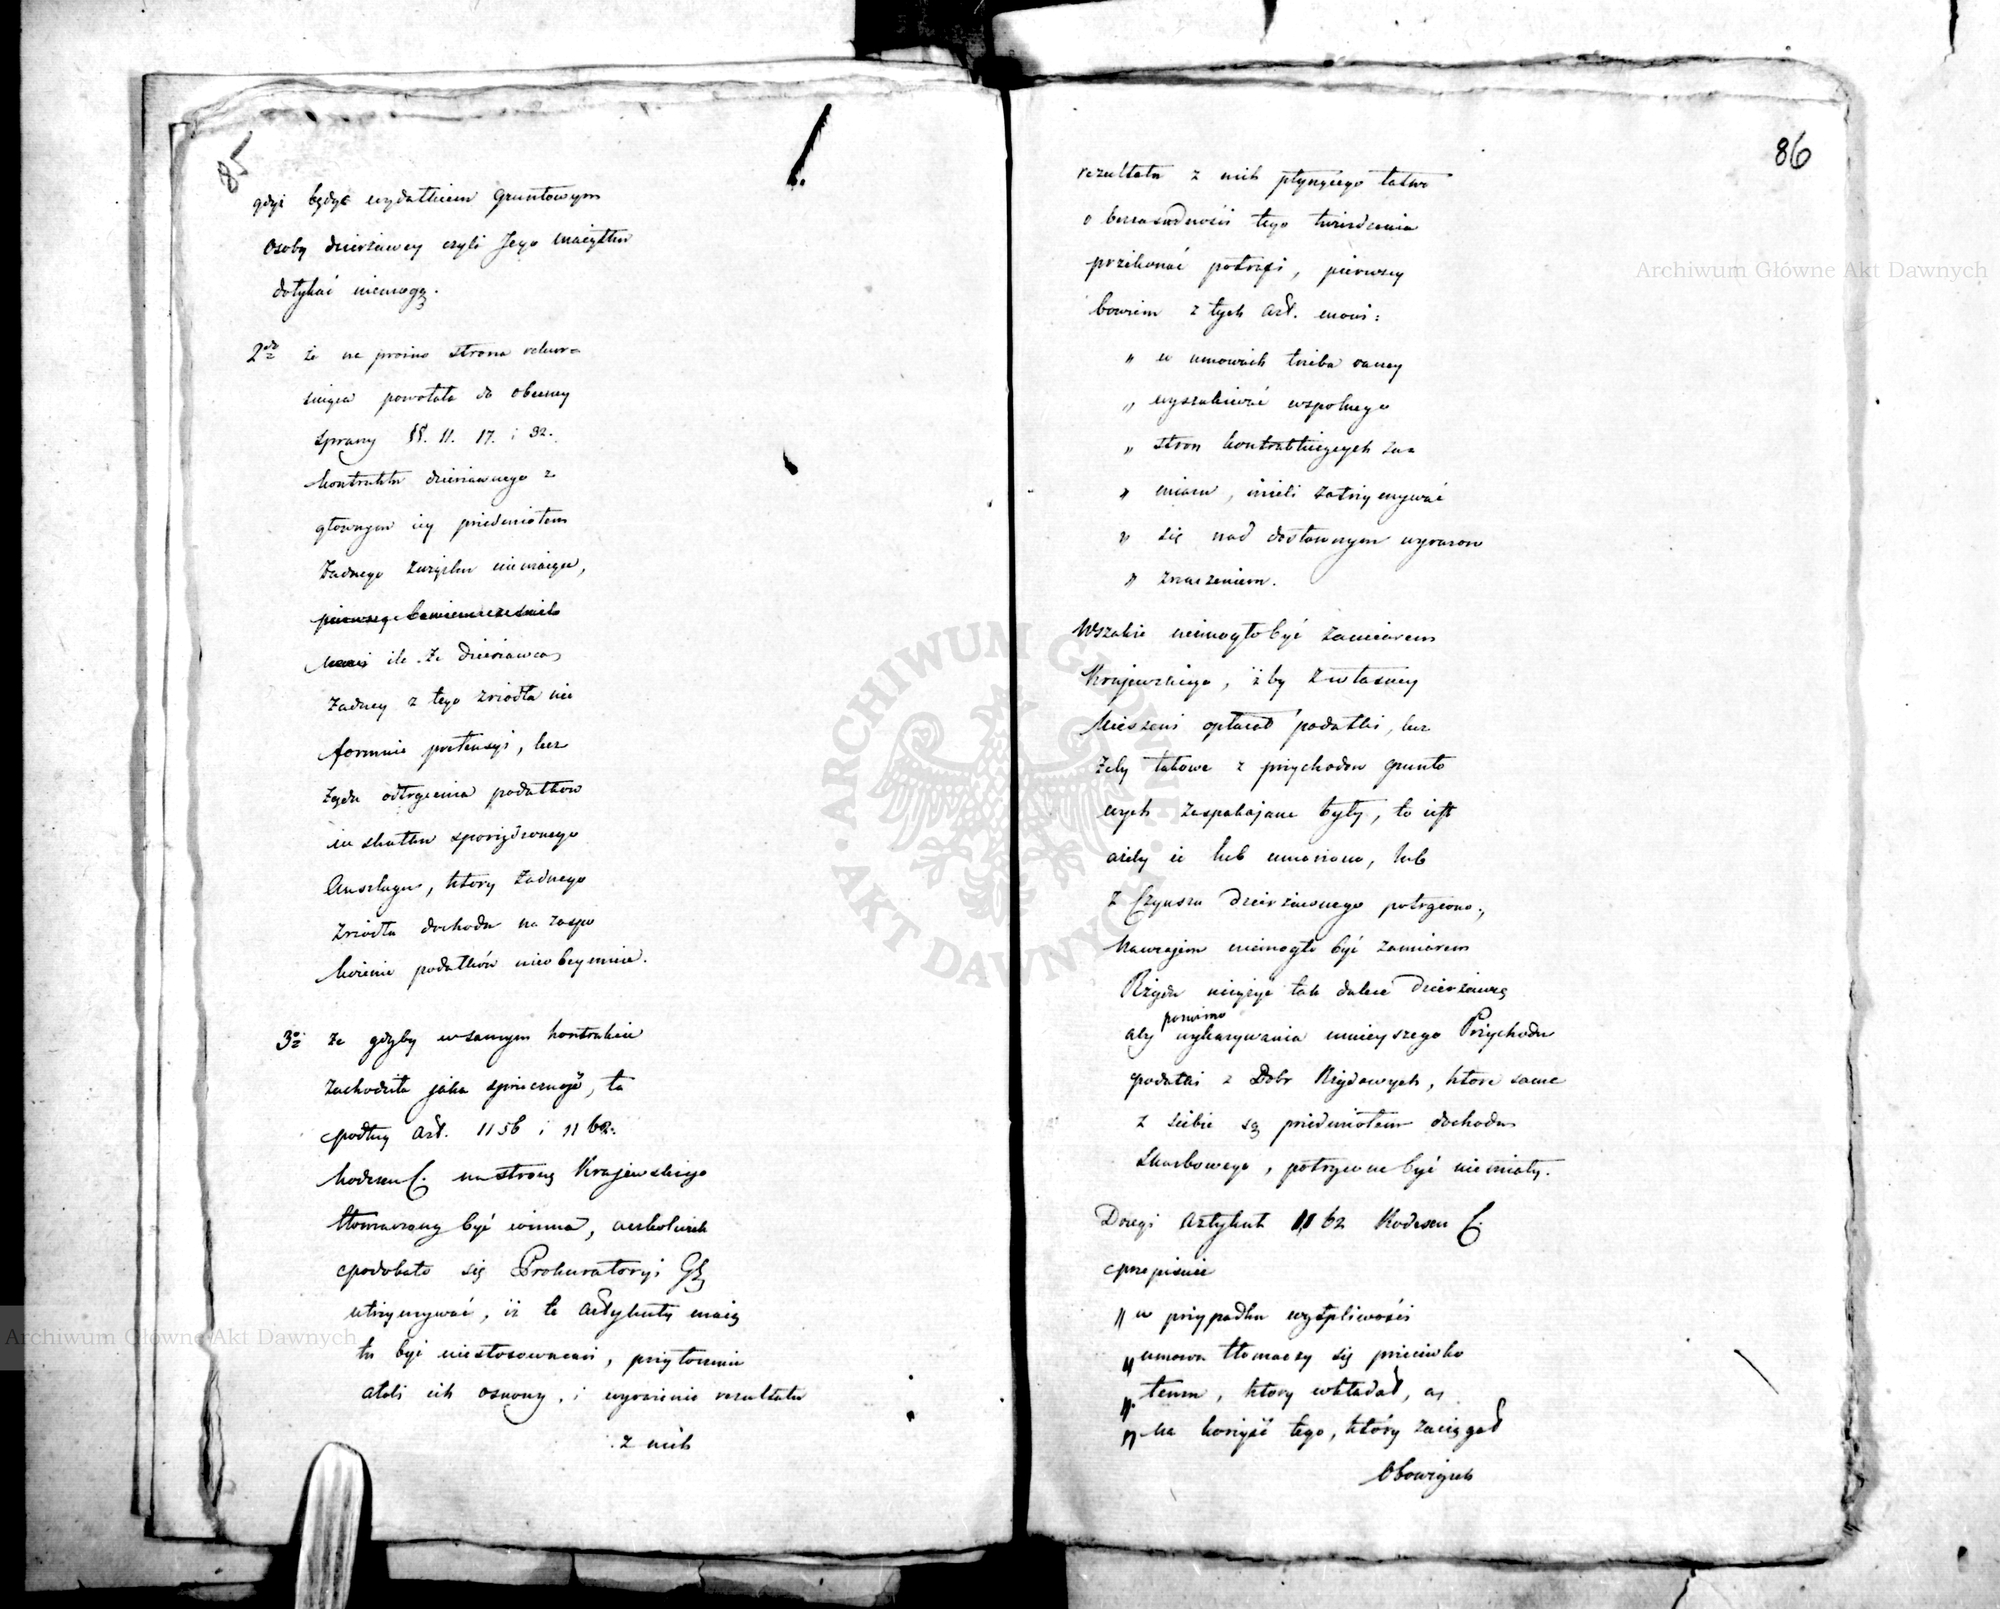 85
gdyż będąc wydatkiem gruntowym
osoby dzierżawcy czyli Jego maiątku
dotykać niemogą.
2do że na prożno strona rekur=
suiąca powołała do obecney
sprawy §§. 11. 17. i 32.
kontraktu dzierżawnego z
głownym iey przedmiotem
żadnego związku niemaiące,
ile że dzierżawca
żadney z tego zrzodła nie
formuie pretensyi, lecz
żąda odtrącenia podatkow
w skutku sporządzonego
Anszlagu, ktory żadnego
zrzodła dochodu na zaspo
koienie podatków nieobeymuie.
3o że gdyby w samym kontrakcie
zachodziła jaka sprzeczność, ta
podług Art. 1156 i 1162.
kodexu C. na stronę Krajewskiego
tłomaczoną być winna, aczkolwiek
podobało się Prokuratoryi
utrzymywać, iż te Artykuły maią
tu być niestosownemi, przytoczenie
atoli ich osnowy, i wyrażenie rezultatu
z nich
86
rezultatu z nich płynącego łatwo
o bezzasadności tego twierdzenia
przekonać potrafi, pierwszy
bowiem z tych Art. mowi:
„ w umowach trzeba raczey
„ wyszukiwać wspolnego
„ stron kontraktuiących za=
„ miaru, niżeli zatrzymywać
„ się nad dosłownym wyrazow
„ znaczeniem.
Wszakże niemogło być zamiarem
Krajewskiego, iżby z własney
kieszeni opłacał podatki, lecz
żeby takowe z przychodow grunto
wych zaspakajane były, to iest
ażeby ie lub umarzano, lub
z Czynszu dzierżawnego potrącono;
nawzajem niemogło być zamiarem
Rządu uciążyć tak dalece dzierżawcę
aby pomimo wykazywania mnieyszego Przychodu
podatki z Dobr Rządowych, ktore same
z siebie są przedmiotem dochodu
Skarbowego, potrącone być niemiały.
Drugi Artykuł 1162 Kodexu C.
przepisuie
„ w przypadku wątpliwości
„ umowa tłomaczy się przeciwko
„ temu, ktory wkładał, a
„ na korzyść tego, który zaciągał
Obowiązek
Archiwum Główne Akt Dawnych
Archiwum Główne Akt Dawnych
ARCHIWUM GŁÓWNE AKT DAWNYCH